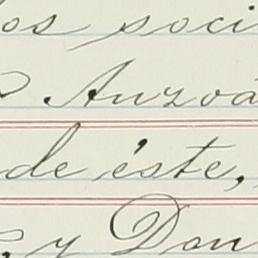 los soci
Anzoá
de éste,
, y Dan